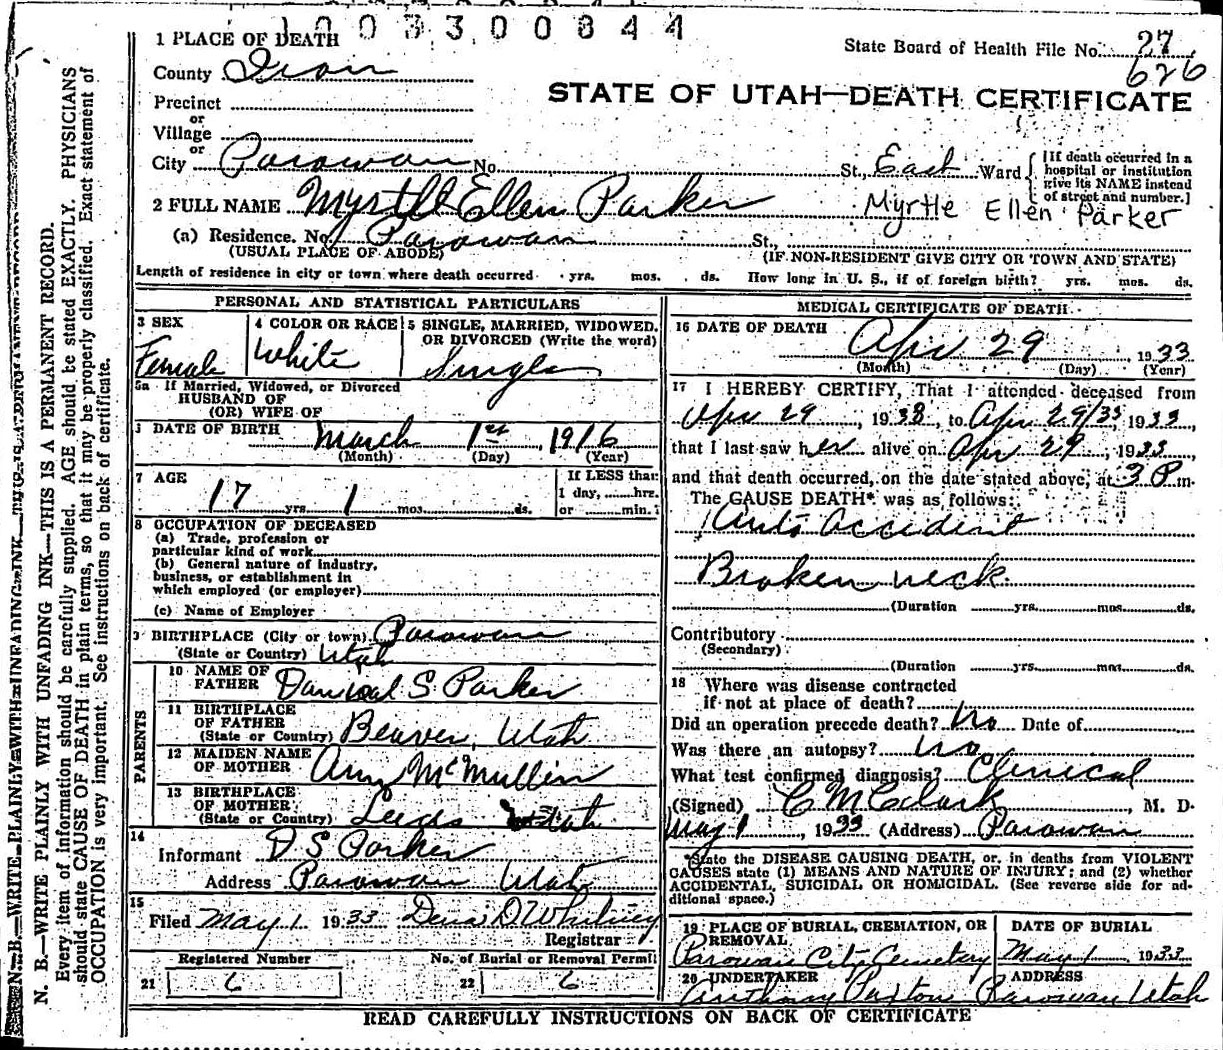 1003300844
1 PLACE OF DEATH
State Board of Health File No. 27
626
County Iron
STATE OF UTAH—DEATH CERTIFICATE
Precinct
or
Village
or
City Parowan No. St., East Ward
[If death occurred in a
hospital or institution
give its NAME instead
of street and number.]
2 FULL NAME Myrtle Ellen Parker
Myrtle Ellen Parker
(a) Residence. No. Parowan St.,
(USUAL PLACE OF ABODE) (IF NON-RESIDENT GIVE CITY OR TOWN AND STATE)
Length of residence in city or town where death occurred yrs. mos. ds. How long in U. S., if of foreign birth? yrs. mos. ds.
PERSONAL AND STATISTICAL PARTICULARS
3 SEX
Female
4 COLOR OR RACE
White
5 SINGLE, MARRIED, WIDOWED,
OR DIVORCED (Write the word)
Single
5a If Married, Widowed, or Divorced
HUSBAND OF
(OR) WIFE OF
DATE OF BIRTH March 1st, 1916
(Month) (Day) (Year)
7 AGE
17 yrs. 1 mos. ds.
If LESS than
1 day, hrs.
or min.?
8 OCCUPATION OF DECEASED
(a) Trade, profession or
particular kind of work
(b) General nature of industry,
business, or establishment in
which employed (or employer)
(c) Name of Employer
BIRTHPLACE (City or town) Parowan
(State or Country) Utah
PARENTS
10 NAME OF
FATHER S. Parker
11 BIRTHPLACE
OF FATHER
(State or Country) Beaver, Utah
12 MAIDEN NAME
OF MOTHER Ann McMullin
13 BIRTHPLACE
OF MOTHER
(State or Country) Leeds Utah
14
Informant D S Parker
Address Parowan Utah
15
Filed May 1 1933 D. Whitney
Registrar
Registered Number
21 6
No. of Burial or Removal Permit
22 6
MEDICAL CERTIFICATE OF DEATH
16 DATE OF DEATH
Apr 29, 1933
(Month) (Day) (Year)
17 I HEREBY CERTIFY, That I attended deceased from
Apr 29, 1933, to Apr 29/33, 1933,
that I last saw her alive on Apr 29, 1933,
and that death occurred, on the date stated above, at 3 P m.
The CAUSE DEATH* was as follows:
Auto accident
Broken neck
(Duration yrs. mos. ds.
Contributory
(Secondary)
(Duration yrs. mos. ds.
18 Where was disease contracted
if not at place of death?
Did an operation precede death? No Date of
Was there an autopsy? no
What test confirmed diagnosis? Clinical
(Signed) C M Clark, M. D.
May 1, 1933 (Address) Parowan
*State the DISEASE CAUSING DEATH, or, in deaths from VIOLENT
CAUSES state (1) MEANS AND NATURE OF INJURY; and (2) whether
ACCIDENTAL, SUICIDAL OR HOMICIDAL. (See reverse side for ad-
ditional space.)
19 PLACE OF BURIAL, CREMATION, OR
REMOVAL
Parowan City Cemetery
DATE OF BURIAL
May 1 1933
20 UNDERTAKER
Anthony Paxton
ADDRESS
Parowan Utah
READ CAREFULLY INSTRUCTIONS ON BACK OF CERTIFICATE
N. B.—WRITE PLAINLY WITH UNFADING INK—THIS IS A PERMANENT RECORD.
Every item of information should be carefully supplied. AGE should be stated EXACTLY. PHYSICIANS
should state CAUSE OF DEATH in plain terms, so that it may be properly classified. Exact statement of
OCCUPATION is very important. See instructions on back of certificate.